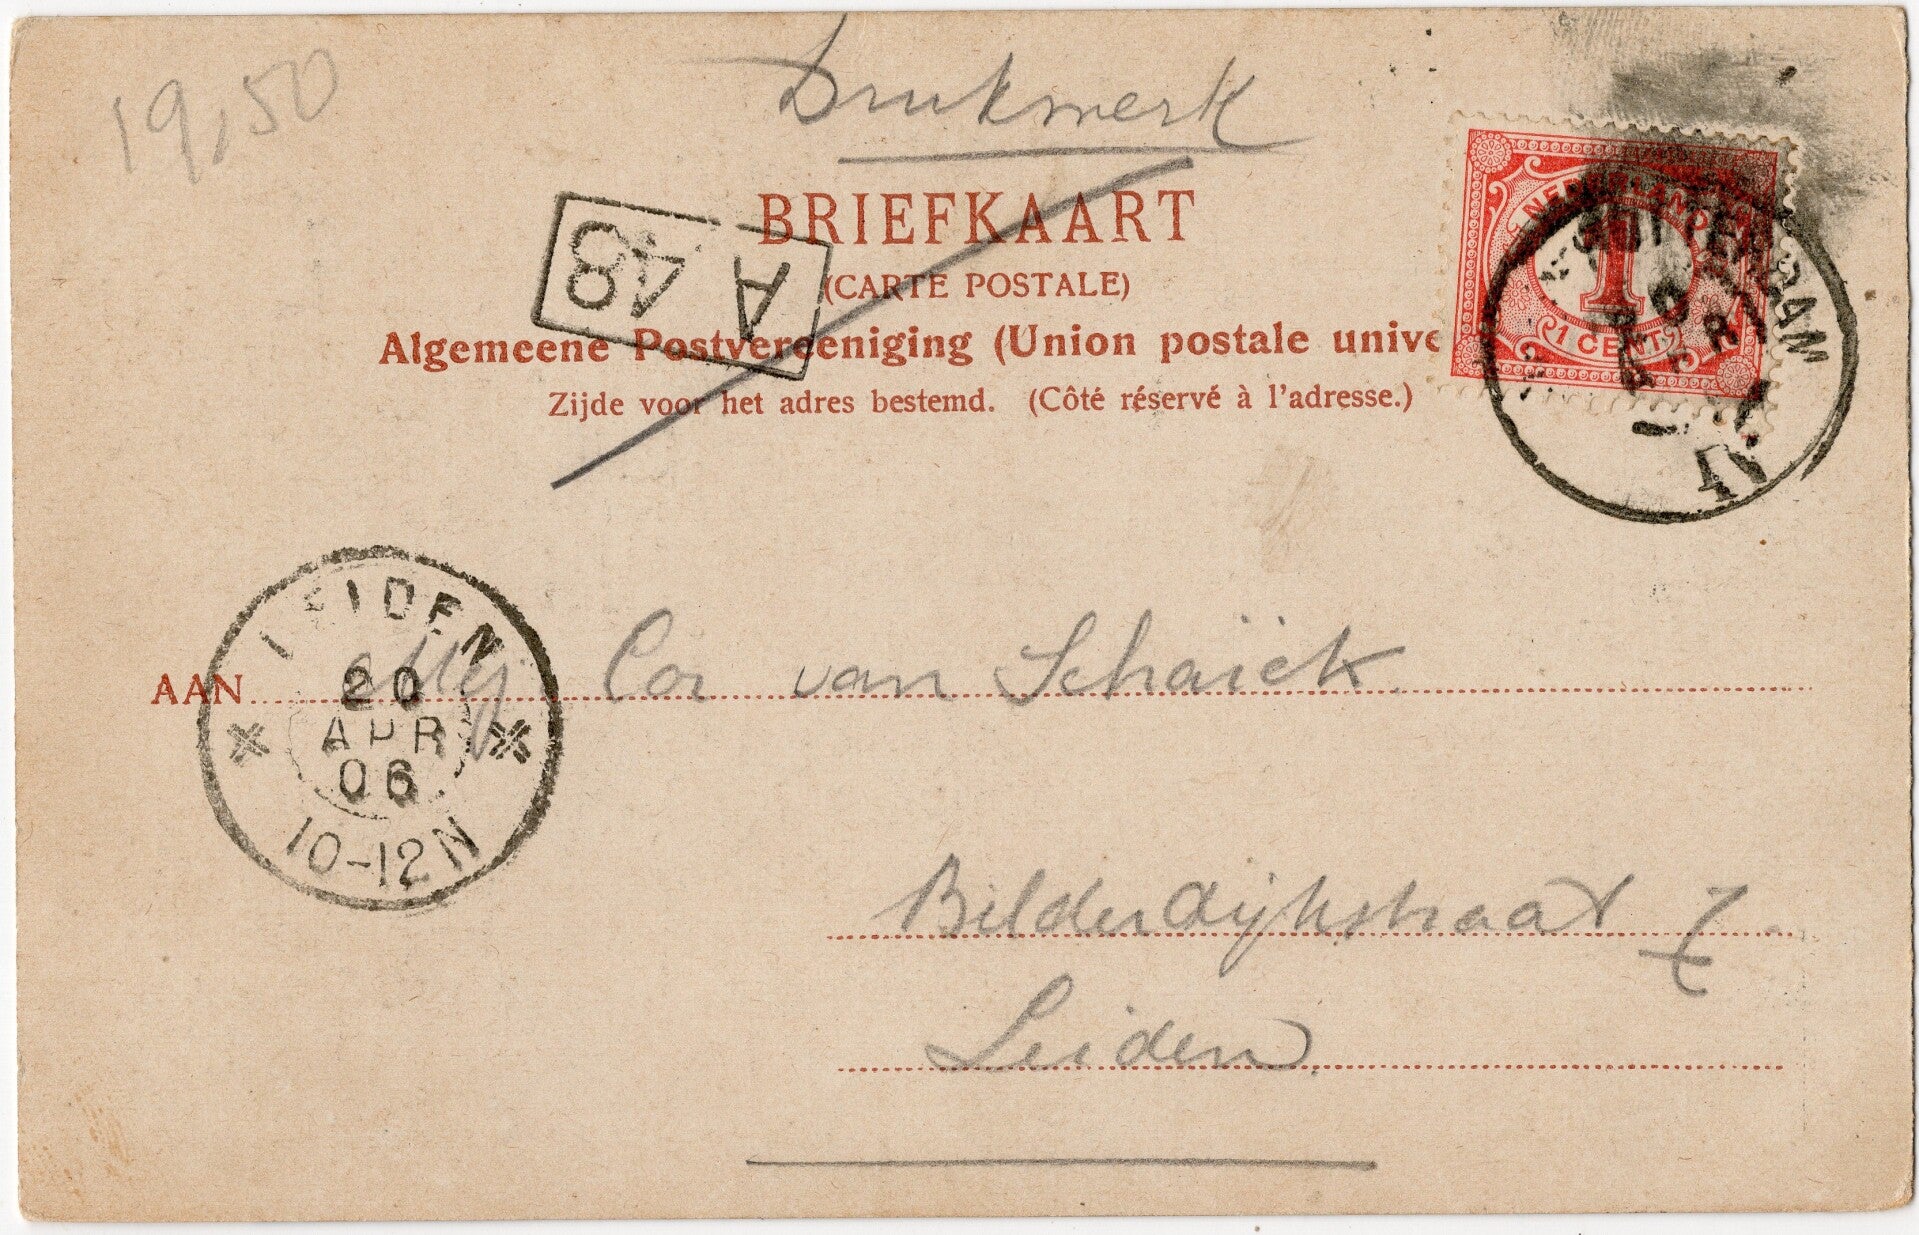 19,50
Drukwerk
BRIEFKAART
A 48
(CARTE POSTALE)
Algemeene Postvereeniging (Union postale unive
Zijde voor het adres bestemd. (Côté réservé à l'adresse.)
NEDERLAND
1
1 CENT
ROTTERDAM
20
APR
LEIDEN
20
APR
06
10-12N
AAN Mej. Cor van Schaïck.
Bilderdijkstraat 7
Leiden.